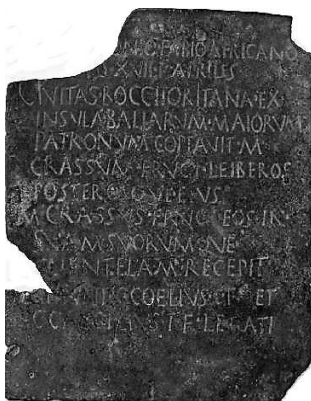 FABIO AFRICANO
XVII K APRILES
CIVITAS BOCCHORITANA EX
INSVLA BALIARVM MAIORVM
PATRONVM COPTAVIT M
CRASSVM FRVGI LEIBEROS
POSTEROSQVE EIVS
M CRASSVS FRVGI EOS IN
SVAM SVORVMQVE
CLIENTELAM RECEPIT
COELIVS C F ET
T F LEGATI